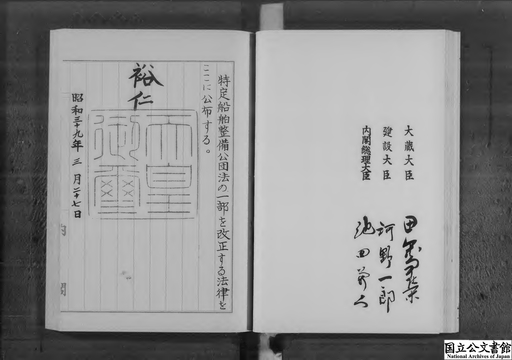 大蔵大臣 田中角榮
建設大臣 河野一郎
内閣総理大臣 池田勇人
特定船舶整備公団法の一部を改正する法律を
ここに公布する。
裕仁
天皇御璽
昭和三十九年三月二十七日
国立公文書館
National Archives of Japan